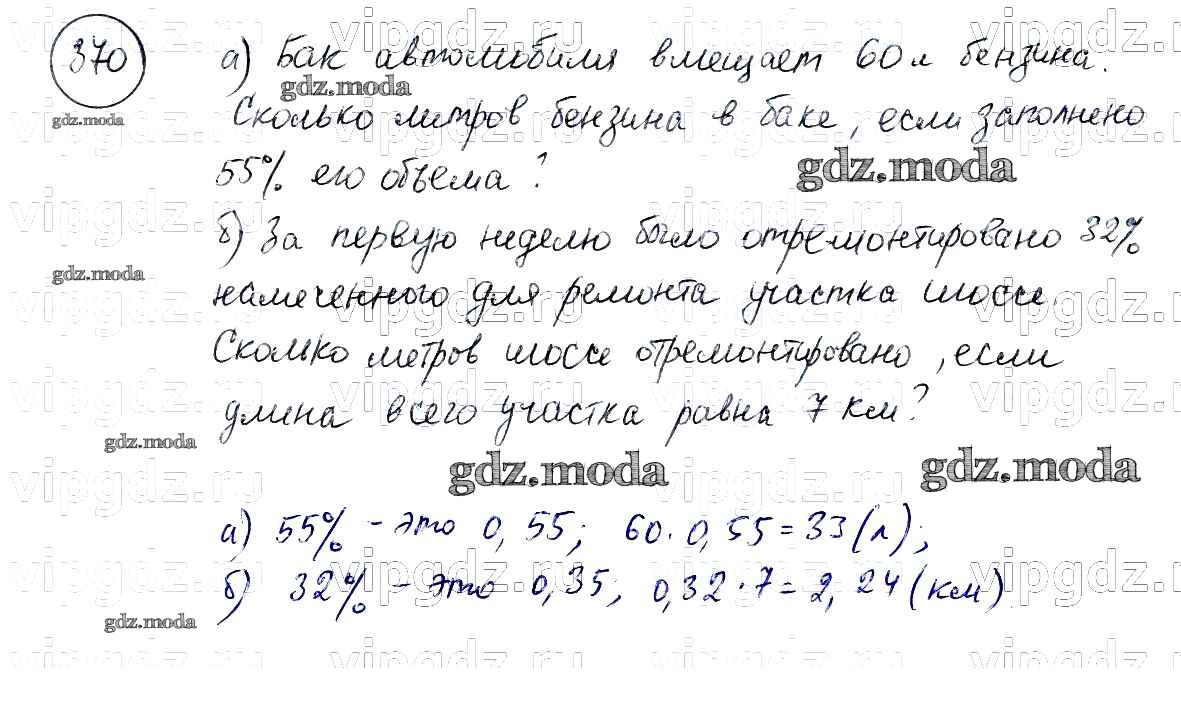 370 а) Бак автомобиля вмещает 60 л бензина.
Сколько литров бензина в баке, если заполнено
55% его объема?
б) За первую неделю было отремонтировано 32%
намеченного для ремонта участка шоссе.
Сколько метров шоссе отремонтировано, если
длина всего участка равна 7 км?
а) 55% - это 0,55; 60 · 0,55 = 33 (л);
б) 32% - это 0,35; 0,32 · 7 = 2,24 (км)
vipgdz.ru
gdz.moda